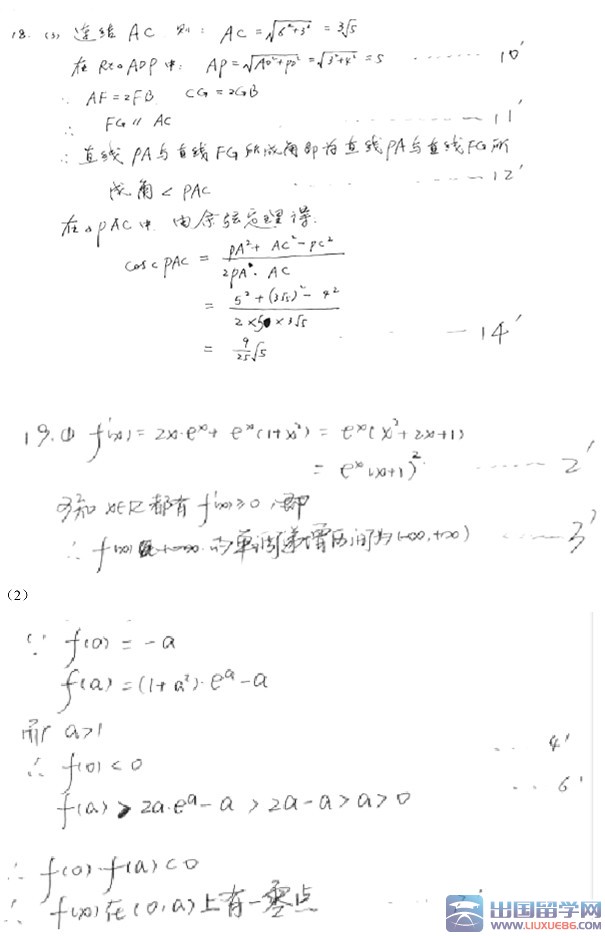 18. (3) 连结 AC 则: AC = √(6²+3²) = 3√5
在Rt△ADP中: AP = √(AD²+PD²) = √(3²+4²) = 5 ······ 10'
∵ AF = 2FB CG = 2GB
∴ FG // AC ······ 11'
∴ 直线PA与直线FG所成角即为直线PA与直线FG所
成角∠PAC ······ 12'
在△PAC中 由余弦定理得:
cos∠PAC = (PA² + AC² - PC²) / (2PA · AC)
= (5² + (3√5)² - 4²) / (2×5×3√5)
= 9/25 √5 ······ 14'
19. ① f'(x) = 2x·eˣ + eˣ(1+x²) = eˣ(x²+2x+1)
= eˣ(x+1)² ······ 2'
可知 x∈R 都有 f'(x) ≥ 0, 即
∴ f(x) 的单调递增区间为(-∞,+∞) ······ 3'
（2）
∵ f(0) = -a
f(a) = (1+a²)·eᵃ - a
而 a>1
∴ f(0) < 0 ·· 4'
f(a) > 2a·eᵃ - a > 2a - a > a > 0 ·· 6'
∴ f(0)·f(a) < 0
∴ f(x)在(0,a)上有一零点
出国留学网
WWW.LIUXUE86.COM